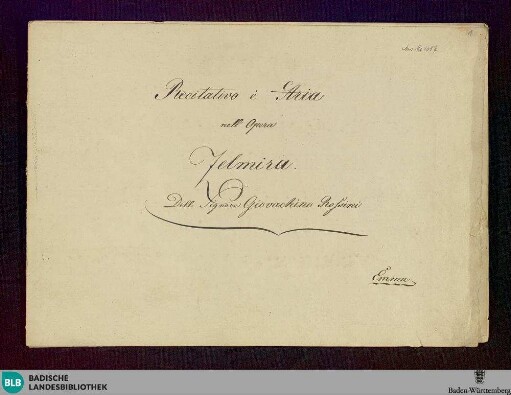 Recitativo è Aria
nell' Opera
Zelmira.
Dell. Signore Giovachino Rossini
Emma
BLB
BADISCHE
LANDESBIBLIOTHEK
Baden-Württemberg